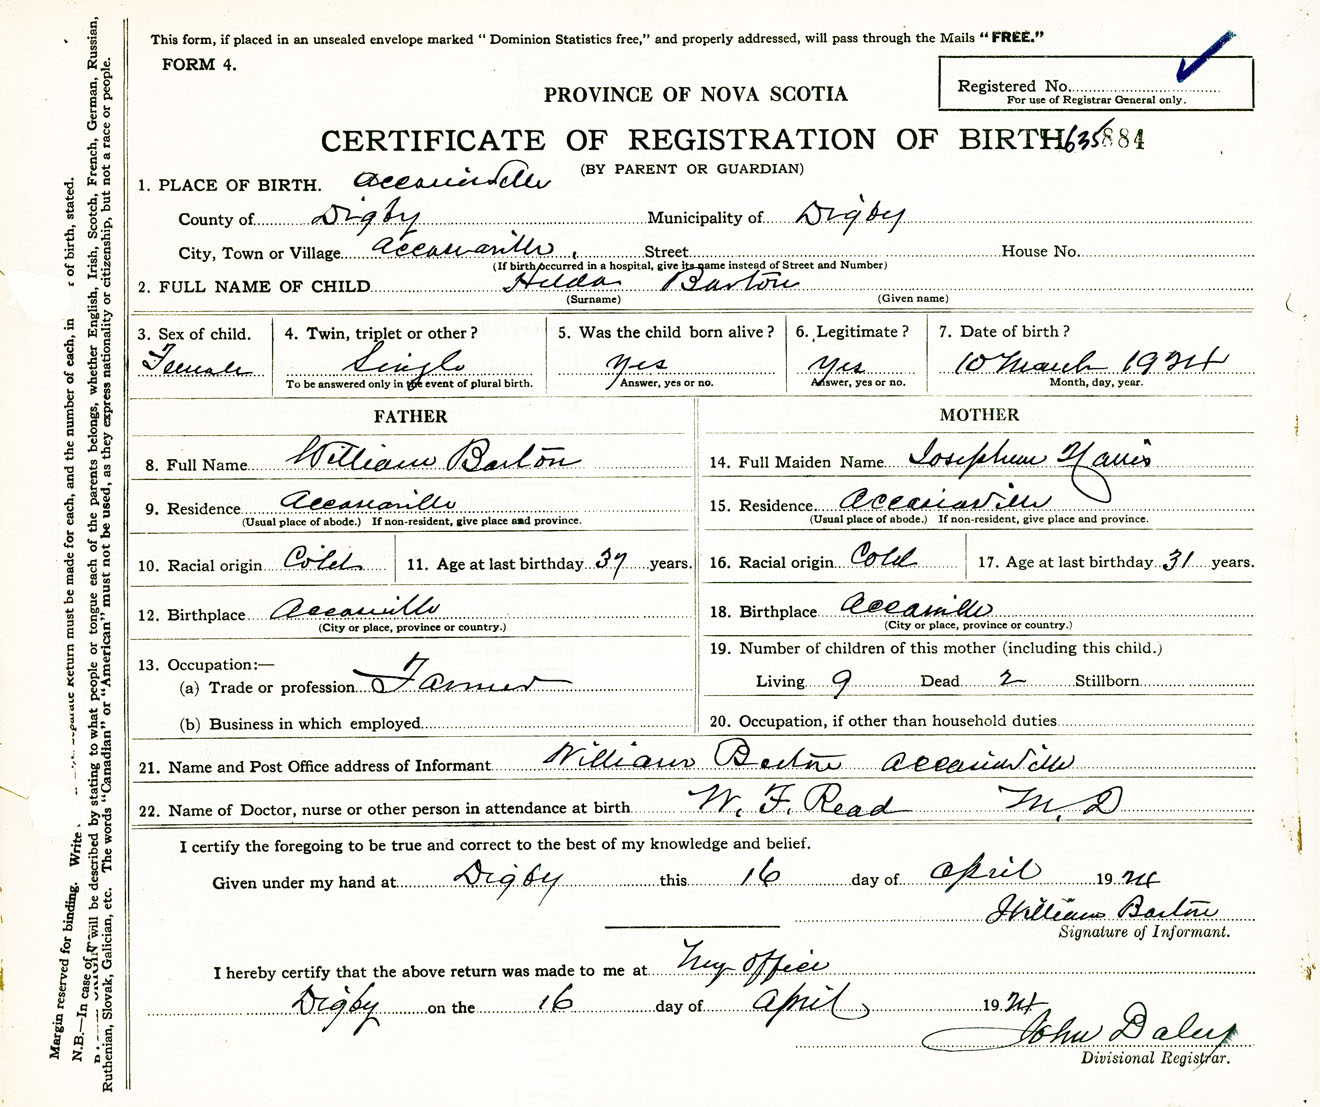 This form, if placed in an unsealed envelope marked “ Dominion Statistics free,” and properly addressed, will pass through the Mails “ FREE.”
FORM 4.
Registered No.
For use of Registrar General only.
PROVINCE OF NOVA SCOTIA
CERTIFICATE OF REGISTRATION OF BIRTH 635884
(BY PARENT OR GUARDIAN)
1. PLACE OF BIRTH.
County of Digby Municipality of Digby
City, Town or Village Street House No.
(If birth occurred in a hospital, give its name instead of Street and Number)
2. FULL NAME OF CHILD Hilda Barton
(Surname) (Given name)
3. Sex of child. 4. Twin, triplet or other ? 5. Was the child born alive ? 6. Legitimate ? 7. Date of birth ?
Female Single Yes Yes 10 March 1924
To be answered only in the event of plural birth. Answer, yes or no. Answer, yes or no. Month, day, year.
FATHER MOTHER
8. Full Name William Barton 14. Full Maiden Name
9. Residence 15. Residence
(Usual place of abode.) If non-resident, give place and province. (Usual place of abode.) If non-resident, give place and province.
10. Racial origin Cold 11. Age at last birthday 37 years. 16. Racial origin Cold 17. Age at last birthday 31 years.
12. Birthplace 18. Birthplace
(City or place, province or country.) (City or place, province or country.)
13. Occupation:— 19. Number of children of this mother (including this child.)
(a) Trade or profession Farmer Living 9 Dead 2 Stillborn
(b) Business in which employed 20. Occupation, if other than household duties
21. Name and Post Office address of Informant William Barton
22. Name of Doctor, nurse or other person in attendance at birth W. F. Read M. D
I certify the foregoing to be true and correct to the best of my knowledge and belief.
Given under my hand at Digby this 16 day of April 1924
William Barton
Signature of Informant.
I hereby certify that the above return was made to me at my office
Digby on the 16 day of April 1924
John Daley
Divisional Registrar.
Margin reserved for binding. Write Return must be made for each, and the number of each, in of birth, stated.
N.B.—In case of will be described by stating to what people or tongue each of the parents belongs, whether English, Irish, Scotch, French, German, Russian,
Ruthenian, Slovak, Galician, etc. The words “Canadian” or “American” must not be used, as they express nationality or citizenship, but not a race or people.